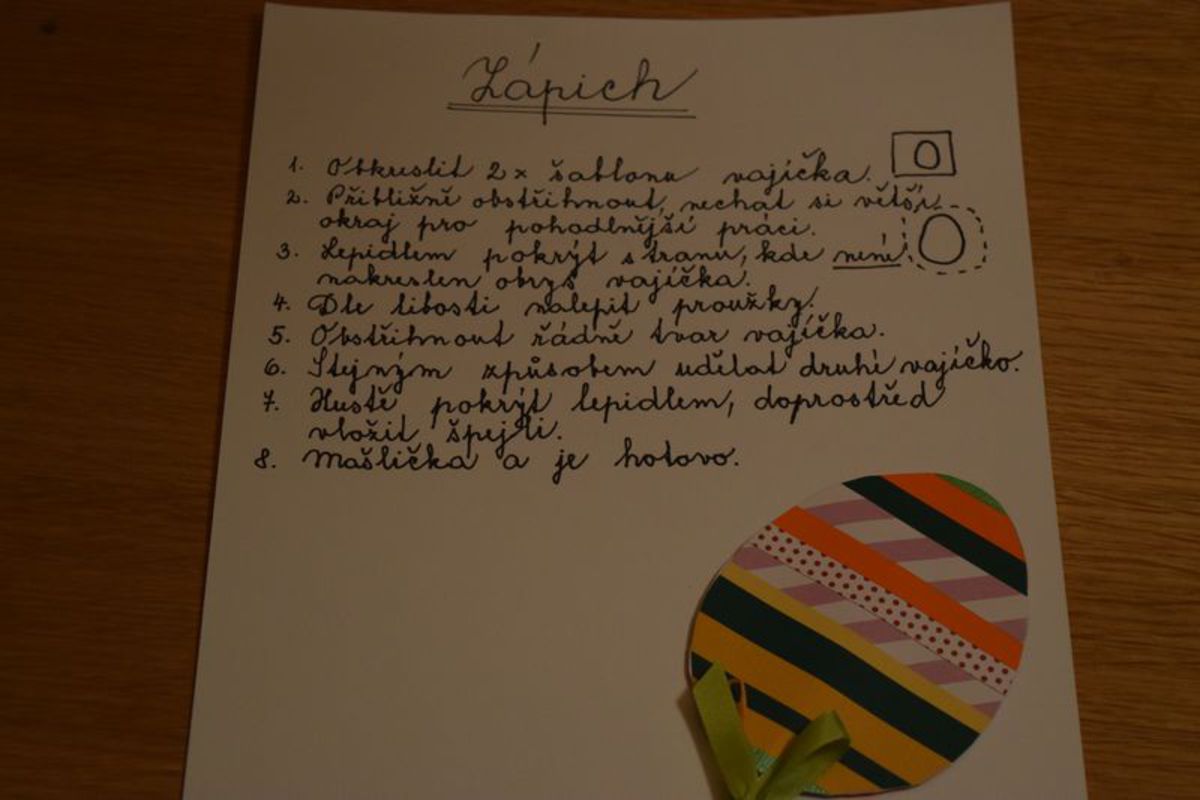 Zápich
1. Obkreslit 2x šablonu vajíčka.
2. Přibližně obstřihnout, nechat si větší
okraj pro pohodlnější práci.
3. Lepidlem pokrýt stranu, kde není
nakreslen obrys vajíčka.
4. Dle libosti nalepit proužky.
5. Obstřihnout řádně tvar vajíčka.
6. Stejným způsobem udělat druhé vajíčko.
7. Hustě pokrýt lepidlem, doprostřed
vložit špejli.
8. Mašlička a je hotovo.